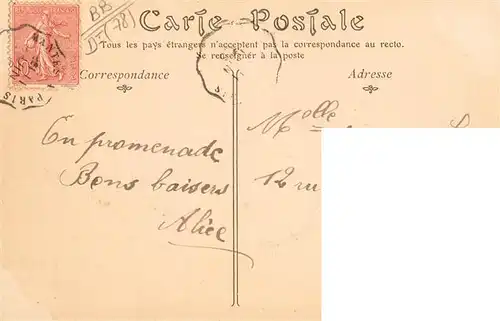 BB
D-(78)
Carte Postale
Tous les pays étrangers n'acceptent pas la correspondance au recto.
Se renseigner à la poste
Correspondance
Adresse
En promenade
Bons baisers
Alice
Melle
12 rue
PARIS